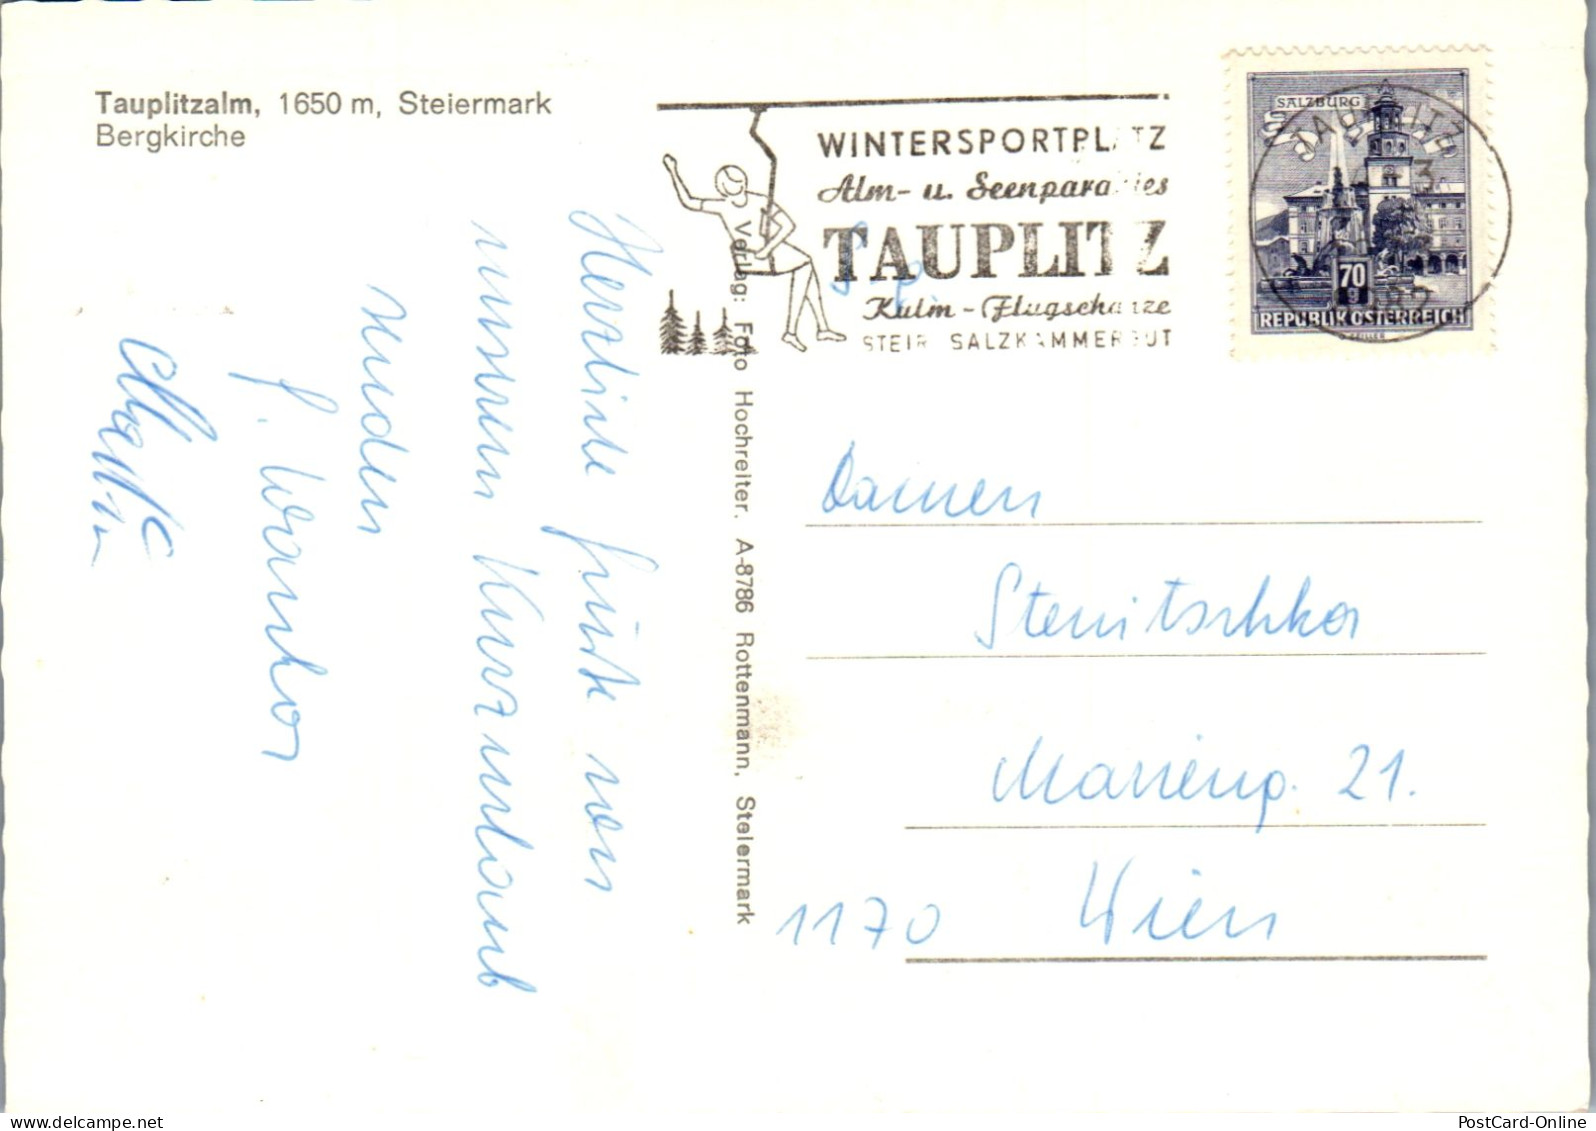 Tauplitzalm, 1650 m, Steiermark
Bergkirche
WINTERSPORTPLATZ
Alm- u. Seenparadies
TAUPLITZ
Kulm - Flugschanze
STEIR SALZKAMMERGUT
SALZBURG
TAUPLITZ
70
g
REPUBLIK ÖSTERREICH
Herzliche Grüße von
unserem Kurzurlaub
senden
Verlag: Foto Hochreiter. A-8786 Rottenmann, Steiermark
Damen
Stenitschka
Marieng. 21.
1170 Wien
PostCard-Online